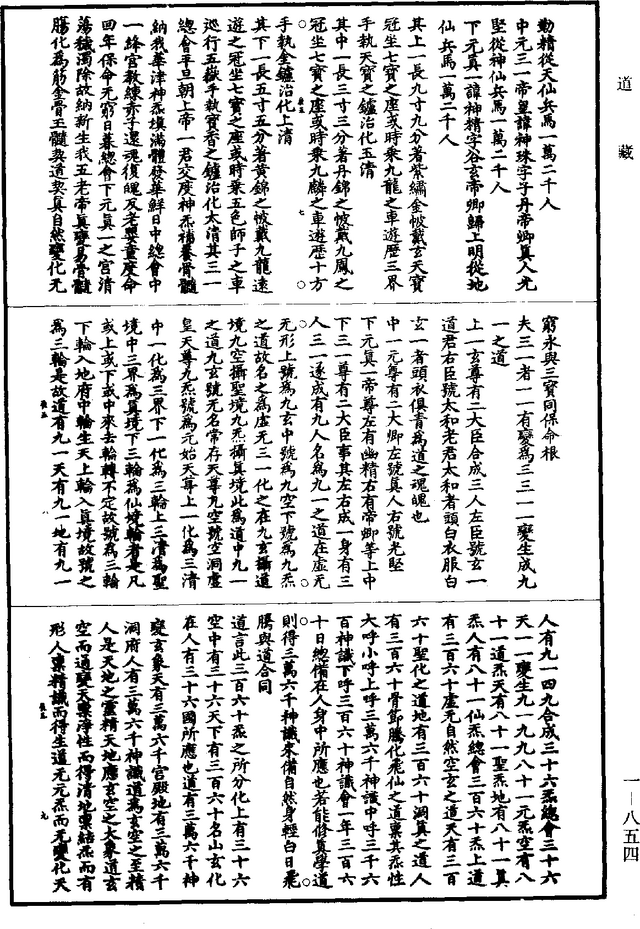 道藏
勤精從天仙兵馬一萬二千人
中元三一帝皇諱神珠字子丹帝卿真人光
堅從神仙兵馬一萬二千人
下元真一諱神精字谷玄帝卿歸上明從地
仙兵馬一萬二千人
其上一長九寸九分著紫繡金帔戴玄天寶
冠坐七寶之座或時乘九龍之車遊歷三界
手執天寶之鑪治化玉清
其中一長三寸三分著丹錦之帔戴九鳳之
冠坐七寶之座或時乘九麟之車遊歷十方
手執金鑪治化上清
其下一長五寸五分著黃錦之帔戴九龍遠
遊之冠坐七寶之座或時乘五色師子之車
巡行五嶽手執寶香之鑪治化太清其三一
總會平旦朝上帝一君交度神炁補養骨髓
納我華津神炁填滿體發華鮮日中總會中
一絳宮教練赤子還魂復魄反老嬰童度命
回年保命无窮日暮總會下元真一之宮清
蕩穢濁除故納新生我五老帝真變易骨髓
腸化為筋金骨玉髓契道契真自然變化无
窮永與三寶同保命根
夫三一者一一有變為三三一一變生成九
一之道
上一玄尊有二大臣合成三人左臣號玄一
道君右臣號太和老君太和者頭白衣服白
玄一者頭衣俱青為道之魂魄也
中一元尊有二大卿左號真人右號光堅
下元真一帝尊左有幽精右有帝卿等上中
下三一尊有二大臣事其左右成一身有三
人三一遂成有九人名為九一之道在虛无
无形上號為九玄中號為九空下號為九炁
之道故名之為虛无三一化之在九玄攝道
境九空攝聖境九炁攝真境此為道中九一
之道九玄號无名常存天尊九空號空洞虛
皇天尊九炁號為元始天尊上一化為三清
中一化為三界下一化為三輪上三清為聖
境中三界為真境下三輪為仙境輪者是凡
或上或下或中來去輪轉不定故號為三輪
下輪入地府中輪生天上輪入真境故號之
為三輪是故道有九一天有九一地有九一
人有九一四九合成三十六炁總會三十六
天一一變生九一九九八十一元炁空有八
十一道炁天有八十一聖炁地有八十一真
炁人有八十一仙炁總會三百六十炁上道
有三百六十虛无自然空玄之道天有三百
六十聖化之道地有三百六十洞真之道人
有三百六十骨節騰化飛仙之道稟其炁性
大呼小呼上呼三萬六千神識中呼三千六
百神識下呼三百六十神識會一年三百六
十日總備在人身中所應也若能修真學道
則得三萬六千神識來備自然身輕白日飛
騰與道合同
道言此三百六十炁之所分化上有三十六
空中有三十六天下有三百六十名山玄化
在人有三十六國所應也道有三萬六千神
變玄象天有三萬六千宮殿地有三萬六千
洞府人有三萬六千神識道為玄空之至精
人是天地之靈精天地應玄空之大象道玄
空而通變天稟淨性而得清地稟結炁而有
形人稟精識而得生道无元炁而无變化天
一—八五四